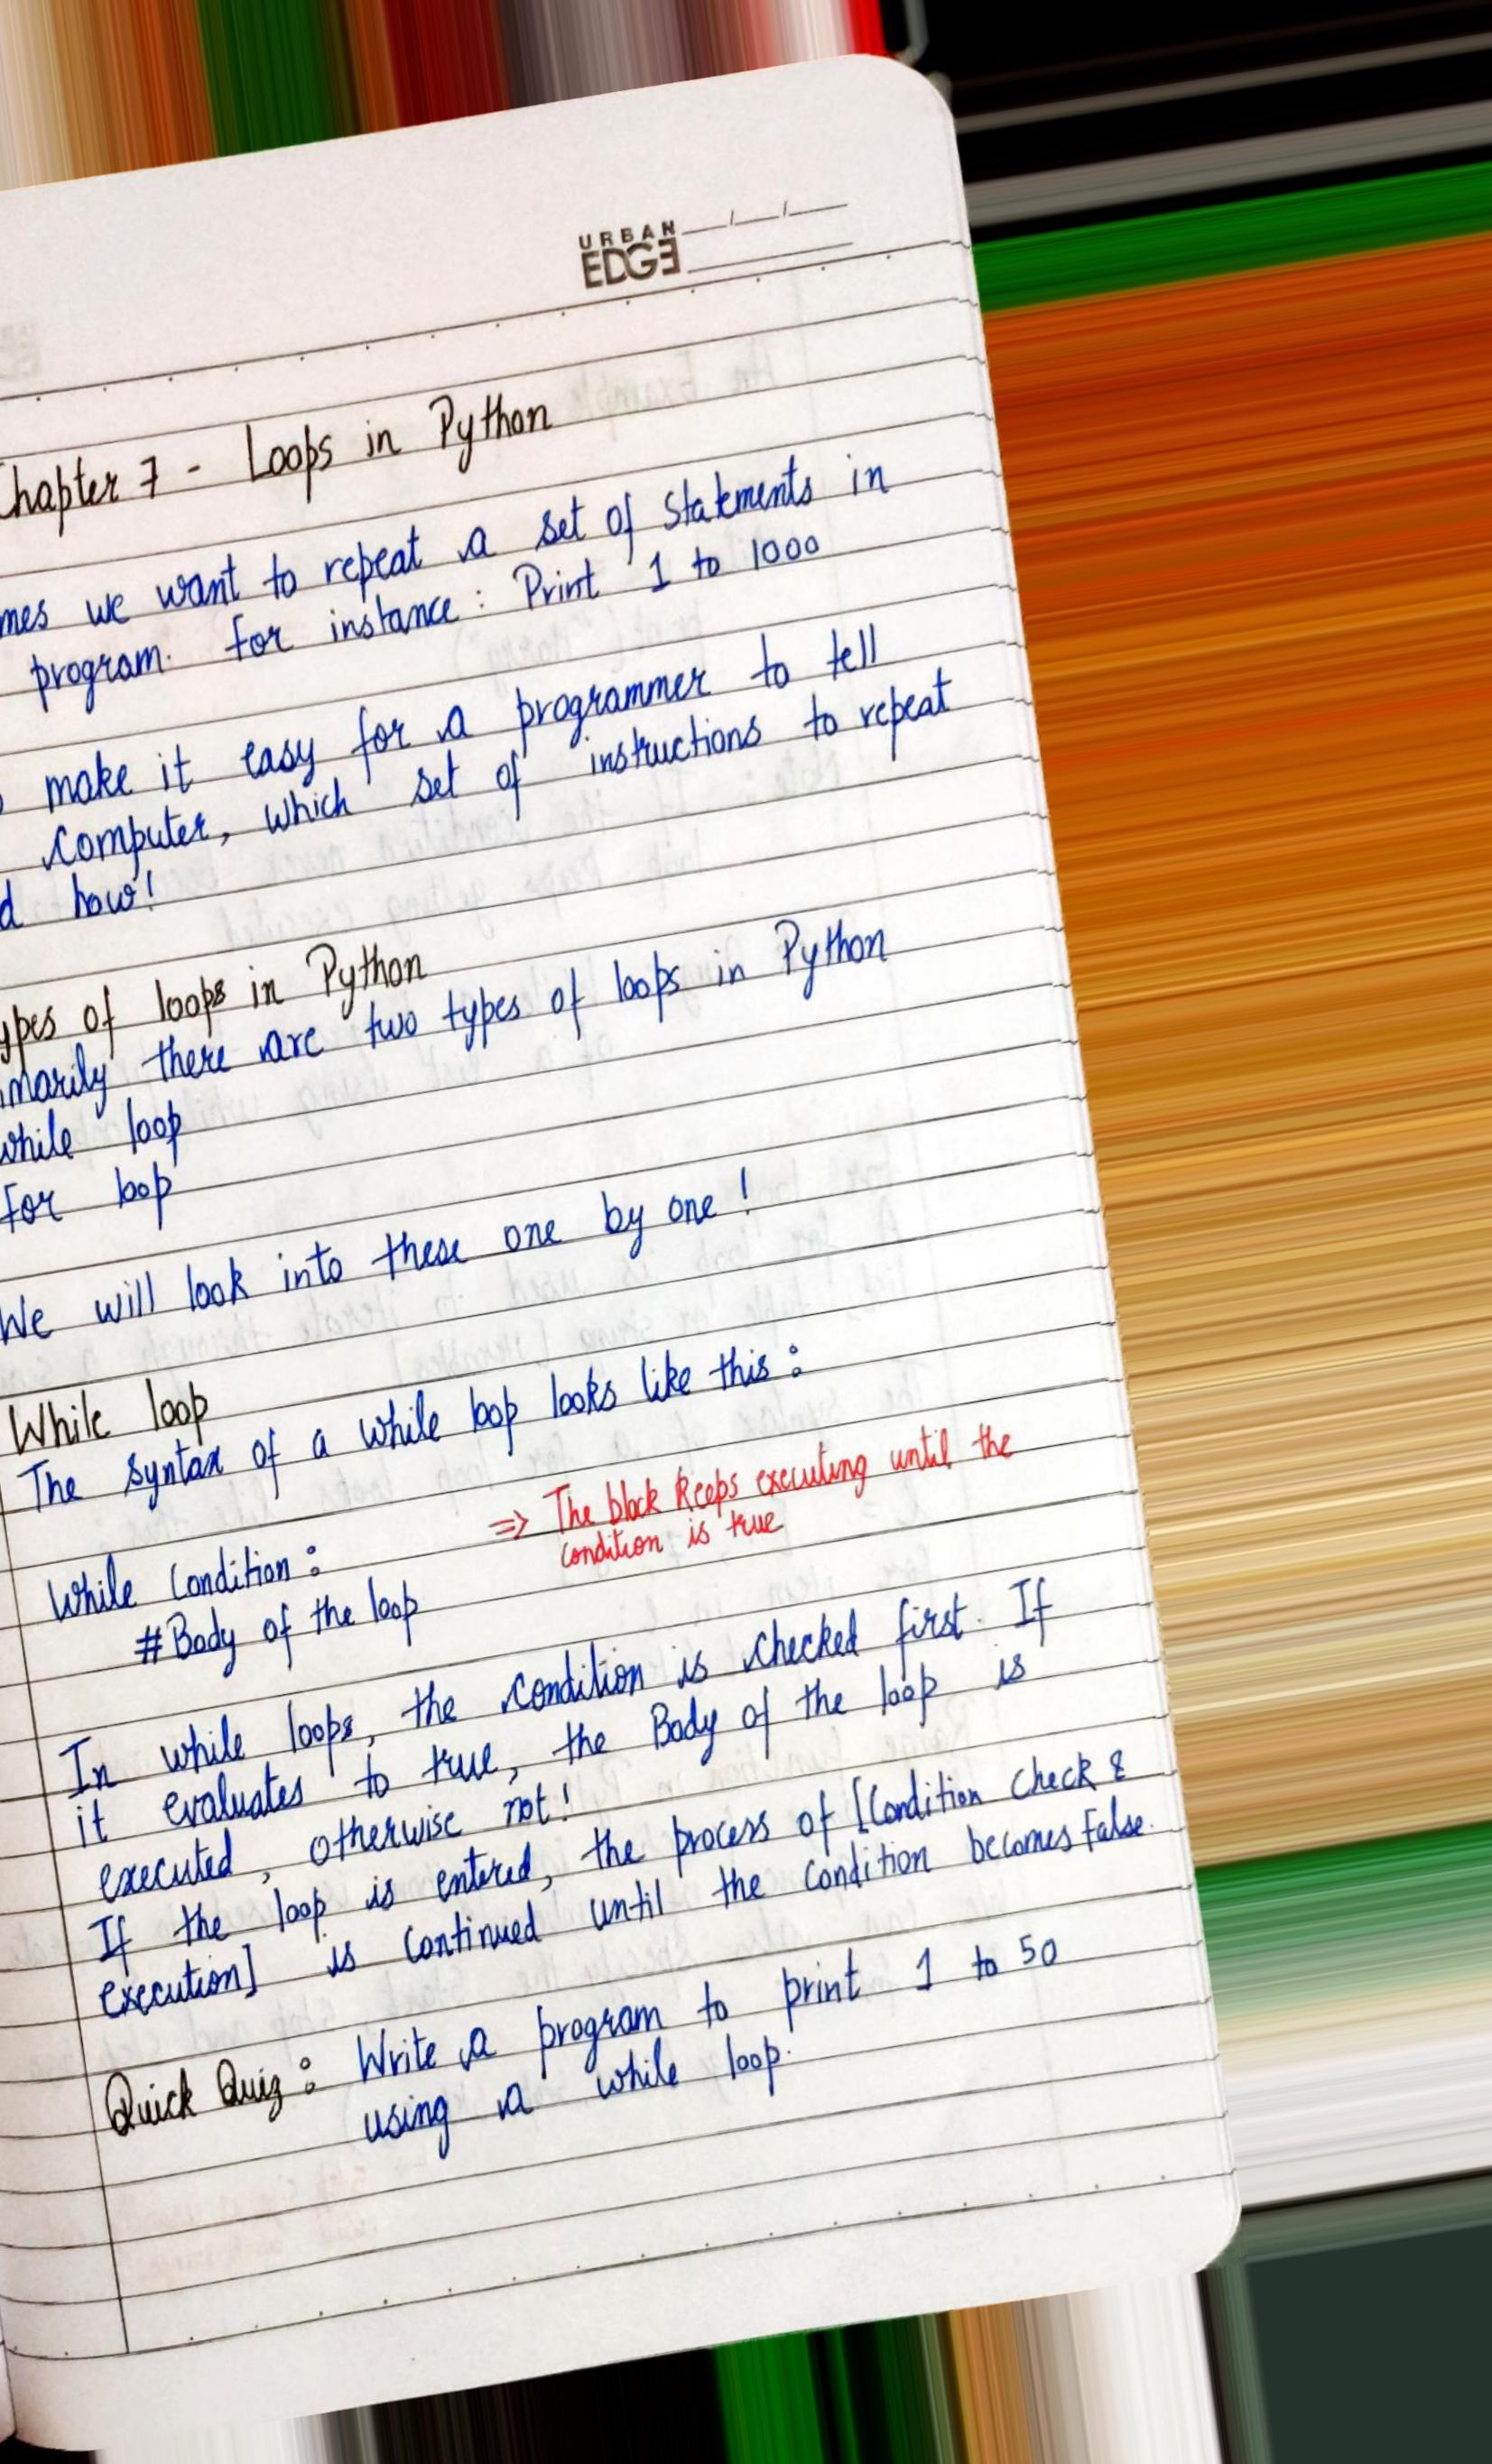 URBAN
EDGE
Chapter 7 - Loops in Python
mes we want to repeat a set of statements in
program. for instance : Print 1 to 1000
make it easy for a programmer to tell
computer, which set of instructions to repeat
d how!
ypes of loops in Python
marily there are two types of loops in Python
while loop
for loop
We will look into these one by one !
While loop
The syntax of a while loop looks like this :
⇒ The block keeps executing until the
condition is true
While Condition :
#Body of the loop
In while loops, the condition is checked first. If
it evaluates to true, the Body of the loop is
executed, otherwise not!
If the loop is entered, the process of [Condition Check &
execution] is continued until the condition becomes False.
Quick Quiz : Write a program to print 1 to 50
using a while loop.